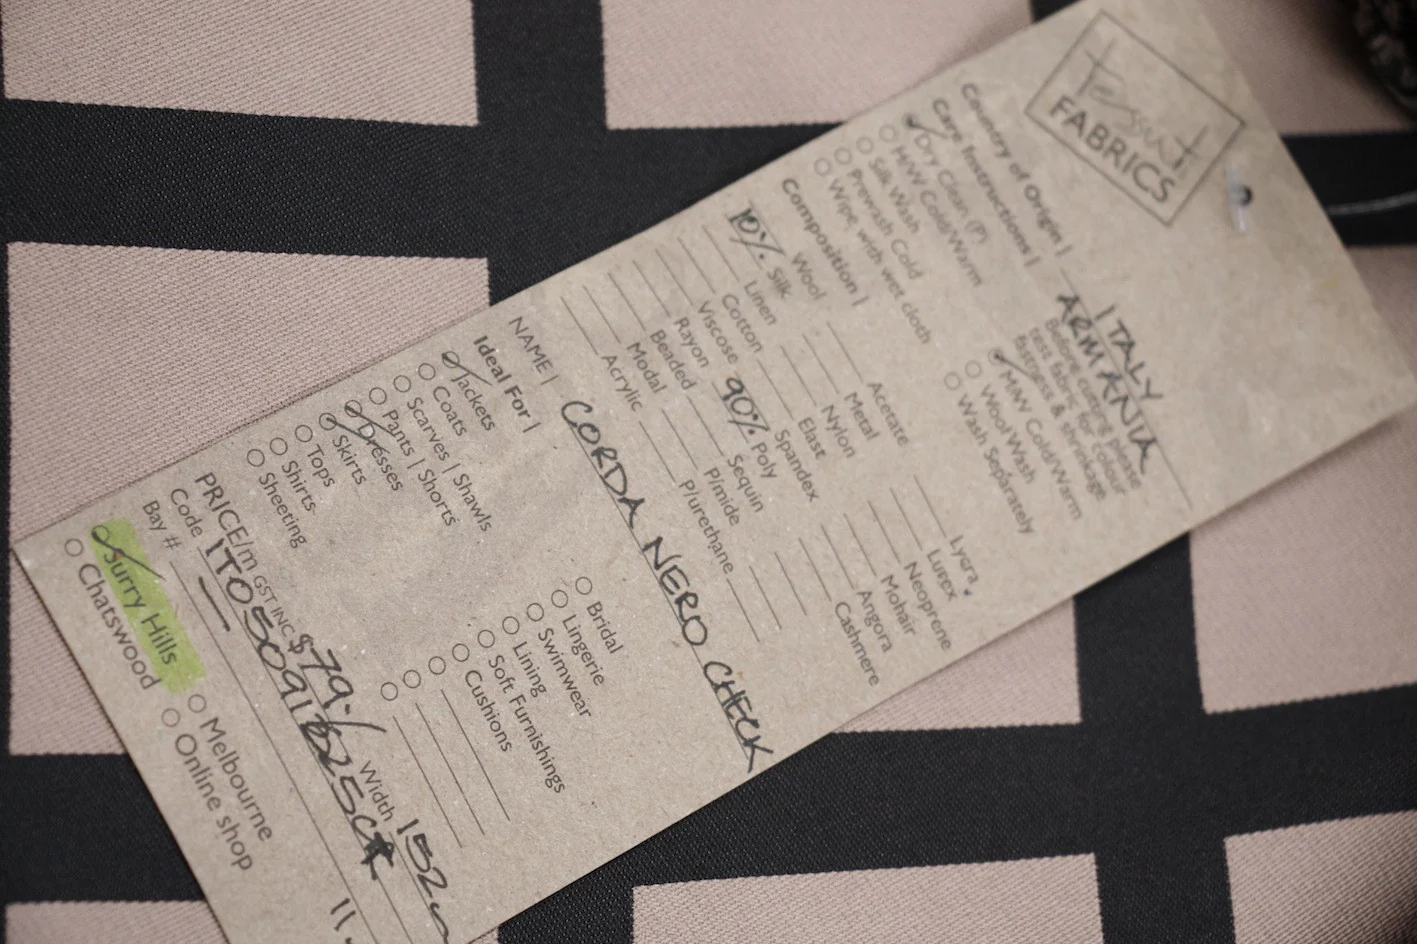 Tessuti
FABRICS
Country of Origin | ITALY
Care Instructions | ARMANIA
Dry Clean (P)
H/W Cold/Warm
Silk Wash
Prewash Cold
Wipe with wet cloth
Before cutting please
test fabric for colour
fastness & shrinkage
M/W Cold/Warm
Wool Wash
Wash Separately
Composition |
Wool
10% Silk
Linen
Cotton
Viscose
Rayon
Beaded
Modal
Acrylic
Acetate
Metal
Nylon
Elast
Spandex
90% Poly
Sequin
P/mide
P/urethane
Lycra
Lurex
Neoprene
Mohair
Angora
Cashmere
NAME | CORDA NERO CHECK
Ideal For |
Jackets
Coats
Scarves | Shawls
Pants | Shorts
Dresses
Skirts
Tops
Shirts
Sheeting
Bridal
Lingerie
Swimwear
Lining
Soft Furnishings
Cushions
PRICE/m GST INC $79.-/ Width 152
Code
Bay #
Surry Hills
Chatswood
Melbourne
Online shop